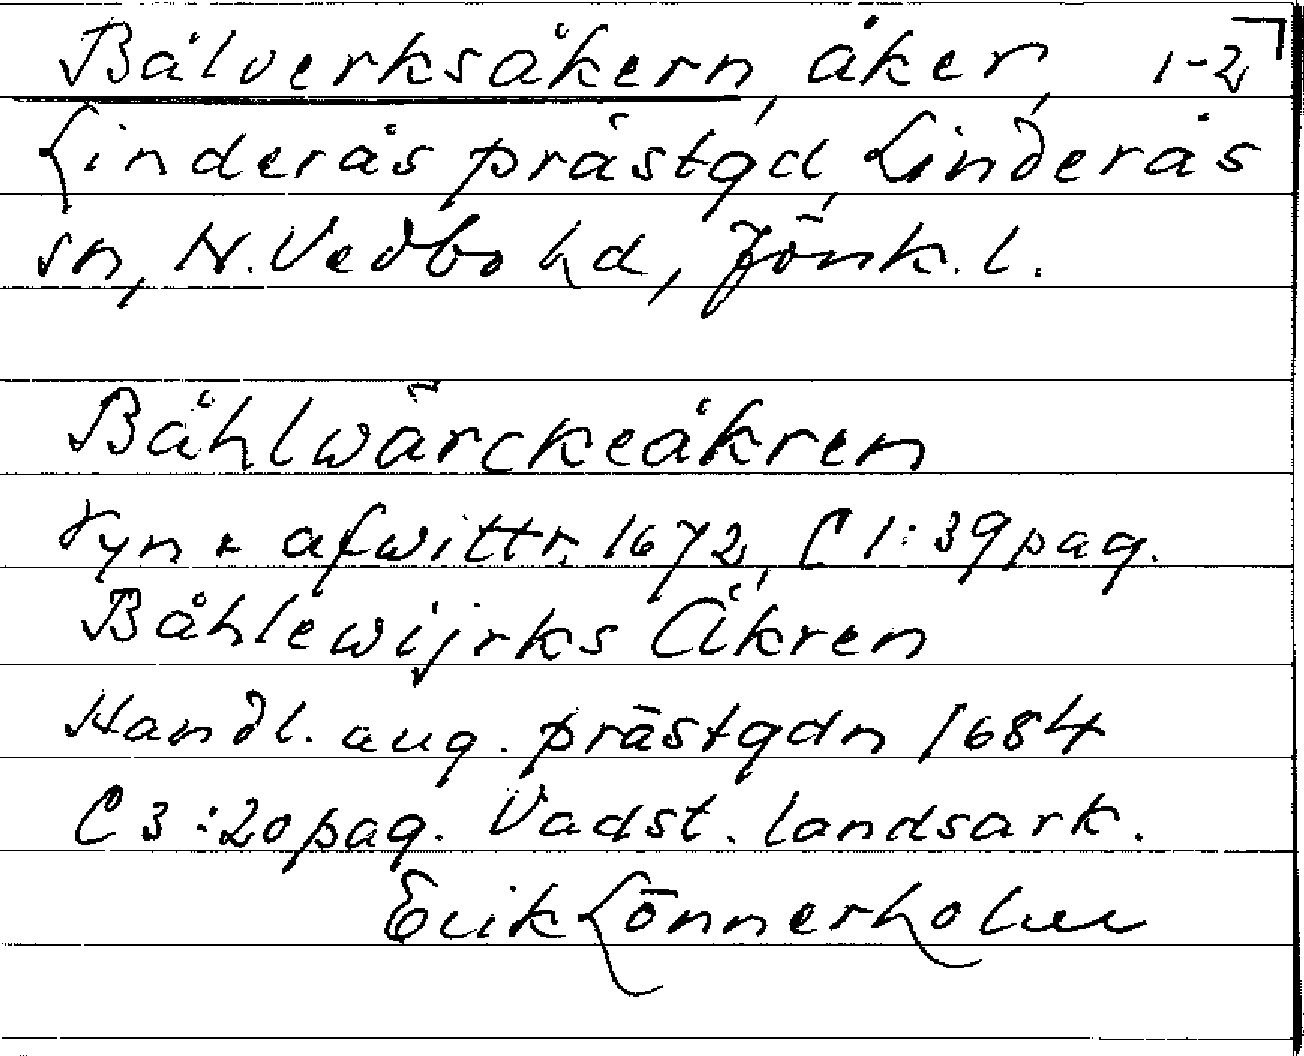 Bålverksåkern, åker, 1-2
Linderås prästgd, Linderås
sn, N. Vedbo hd, Jönk. l.
Båhlwärckeåkren
Syn & afwittr. 1672, C 1:39 pag.
Båhlewijrks Åkren
Handl. ang. prästgdn 1684
C 3:20 pag. Vadst. landsark.
Erik Lönnerholm